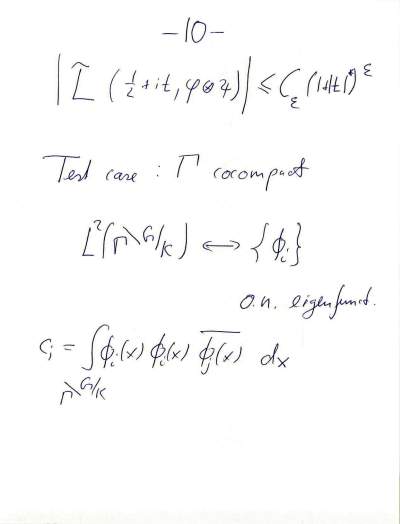 -10-
|L̃ (½+it, φ⊗ψ)| ≤ C_ε (1+|t|)^ε
Test case : Γ cocompact
L²(Γ\G/K) ↔ {ϕ_i}
o.n. eigenfunct.
c_j = ∫ ϕ_i(x) ϕ_i(x) \overline{ϕ_j(x)} dx
Γ\G/K